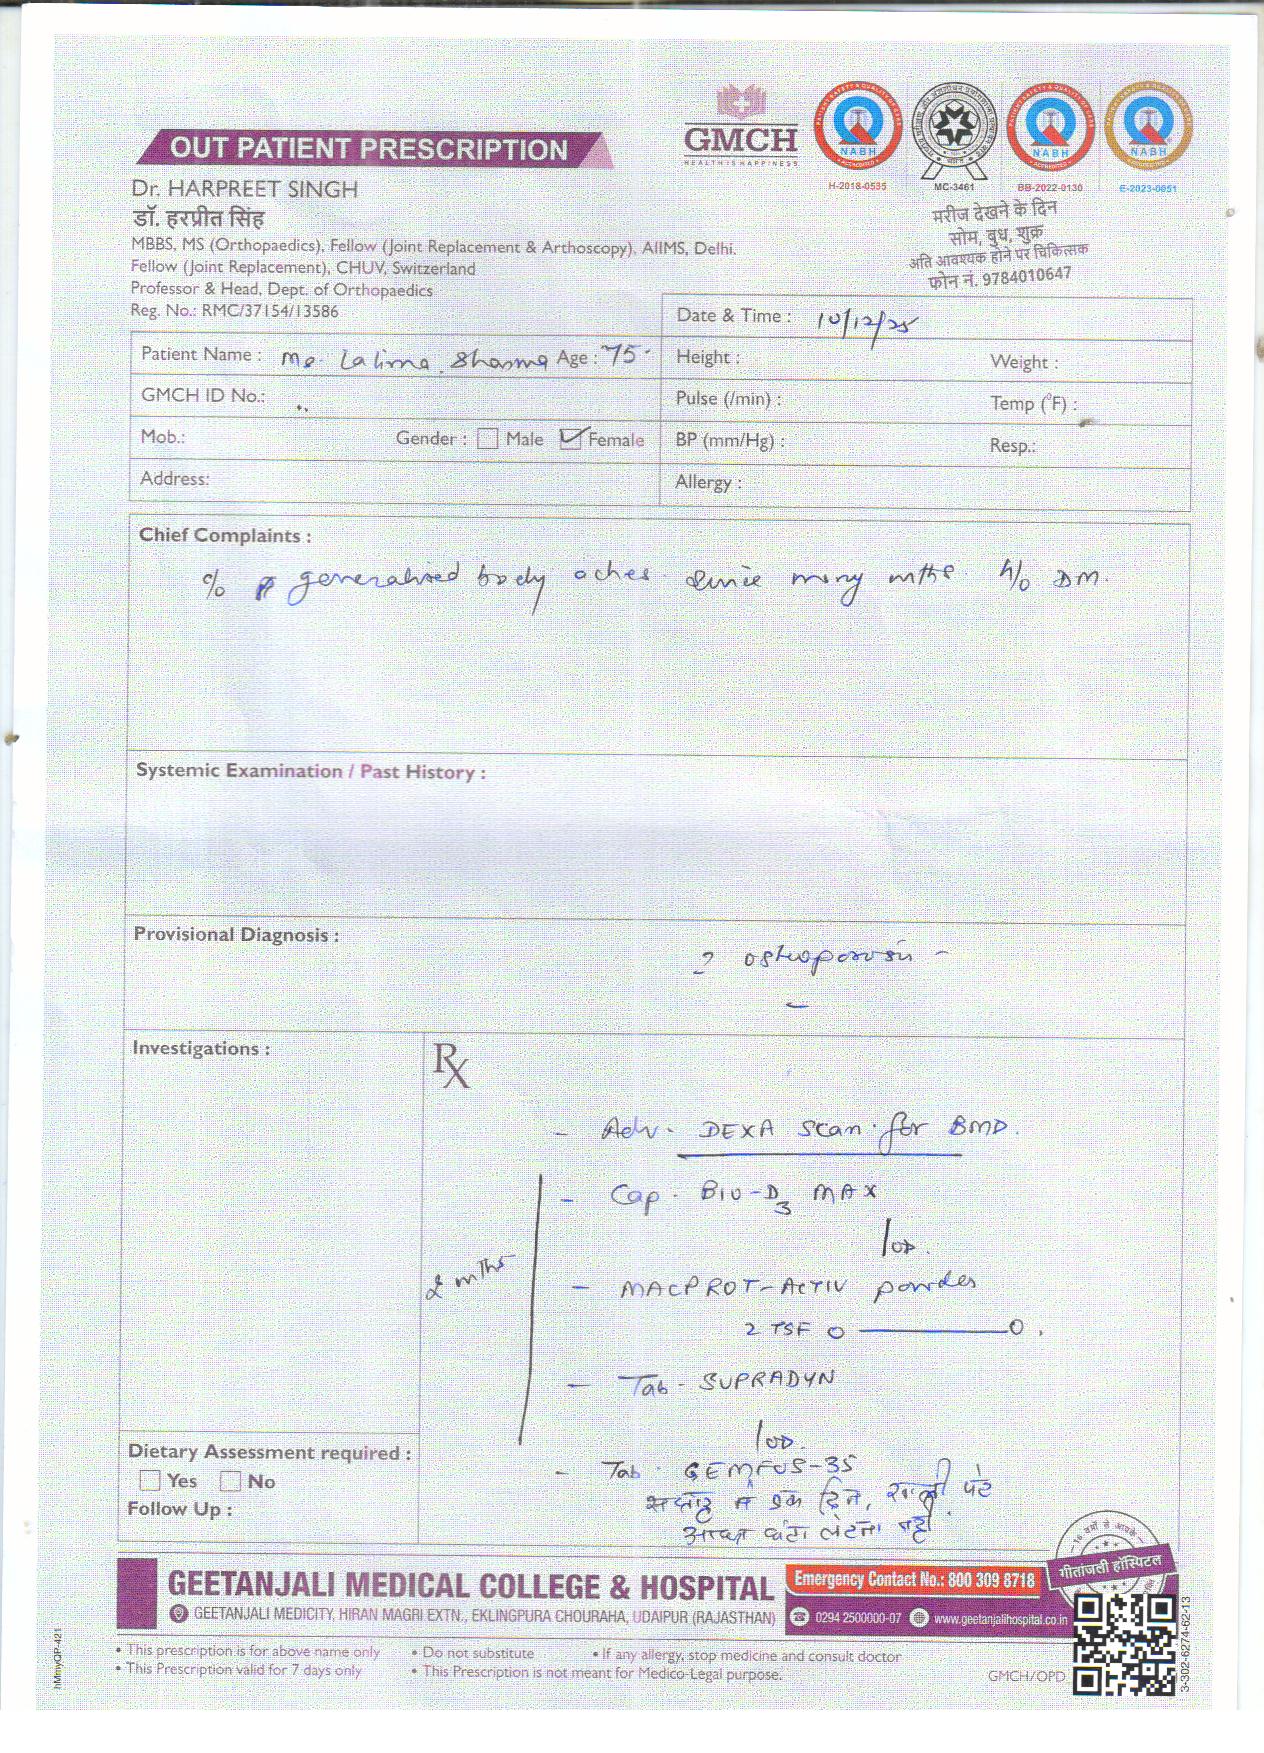 GMCH
HEALTH IS HAPPINESS
NABH
NABH
NABH
H-2018-0535
MC-3461
BB-2022-0130
E-2023-0051
OUT PATIENT PRESCRIPTION
Dr. HARPREET SINGH
डॉ. हरप्रीत सिंह
MBBS, MS (Orthopaedics), Fellow (Joint Replacement & Arthoscopy), AIIMS, Delhi.
Fellow (Joint Replacement), CHUV, Switzerland
Professor & Head, Dept. of Orthopaedics
Reg. No.: RMC/37154/13586
मरीज देखने के दिन
सोम, बुध, शुक्र
अति आवश्यक होने पर चिकित्सक
फोन नं. 9784010647
Date & Time : 10/12/25
Patient Name : Ms. Lalima Sharma Age : 75
Height : Weight :
GMCH ID No.:
Pulse (/min) : Temp (°F) :
Mob.: Gender : Male Female
BP (mm/Hg) : Resp.:
Address:
Allergy :
Chief Complaints :
c/o generalized body aches since many mths h/o DM.
Systemic Examination / Past History :
Provisional Diagnosis :
? osteoporosis
Investigations :
Rx
- Adv. DEXA scan for BMD.
- Cap. BIO-D3 MAX
1 OD.
2 mths
- MACPROT-ACTIV powder
2 TSF 0 ——— 0
- Tab - SUPRADYN
1 OD.
- Tab. GEMFOS-35
सप्ताह में एक दिन, खाली पेट
आधा घंटा लेटना नहीं
Dietary Assessment required :
Yes No
Follow Up :
गीतांजली हॉस्पिटल
GEETANJALI MEDICAL COLLEGE & HOSPITAL
GEETANJALI MEDICITY, HIRAN MAGRI EXTN., EKLINGPURA CHOURAHA, UDAIPUR (RAJASTHAN)
Emergency Contact No.: 800 309 8718
0294 2500000-07 www.geetanjalihospital.co.in
• This prescription is for above name only • Do not substitute • If any allergy, stop medicine and consult doctor
• This Prescription valid for 7 days only • This Prescription is not meant for Medico-Legal purpose.
GMCH/OPD
3-302-6274-62-13